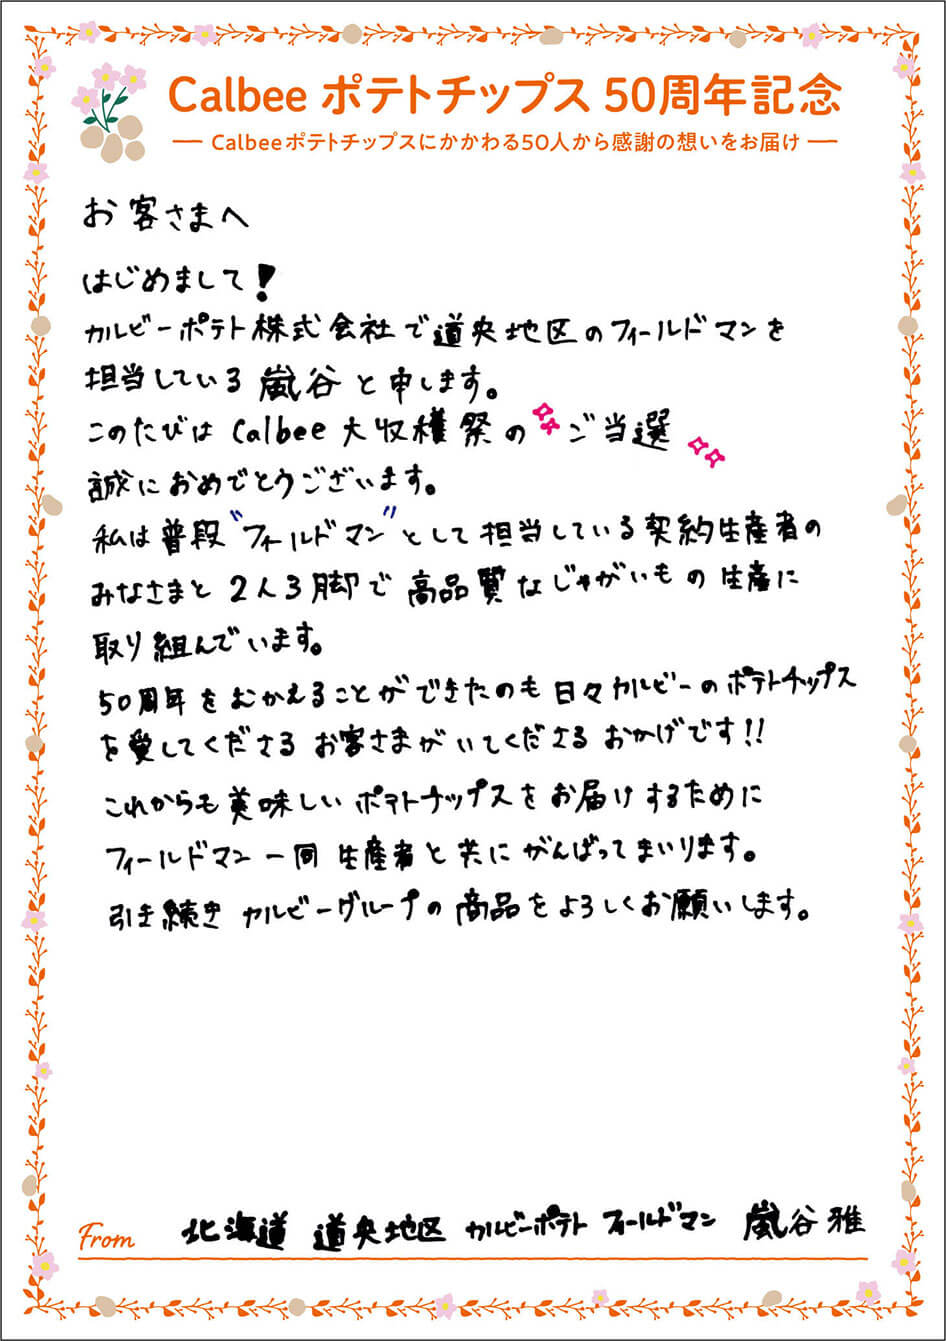 Calbee ポテトチップス 50周年記念
Calbeeポテトチップスにかかわる50人から感謝の想いをお届け
お客さまへ
はじめまして!
カルビーポテト株式会社で道央地区のフィールドマンを
担当している嵐谷と申します。
このたびは Calbee 大収穫祭の ご当選
誠におめでとうございます。
私は普段“フィールドマン”として担当している契約生産者の
みなさまと 2人3脚で 高品質なじゃがいもの生産に
取り組んでいます。
50周年をむかえることができたのも日々カルビーのポテトチップス
を愛してくださるお客さまがいてくださるおかげです!!
これからも美味しいポテトチップスをお届けするために
フィールドマン一同 生産者と共にがんばってまいります。
引き続き カルビーグループの商品をよろしくお願いします。
From 北海道 道央地区 カルビーポテト フィールドマン 嵐谷 雅